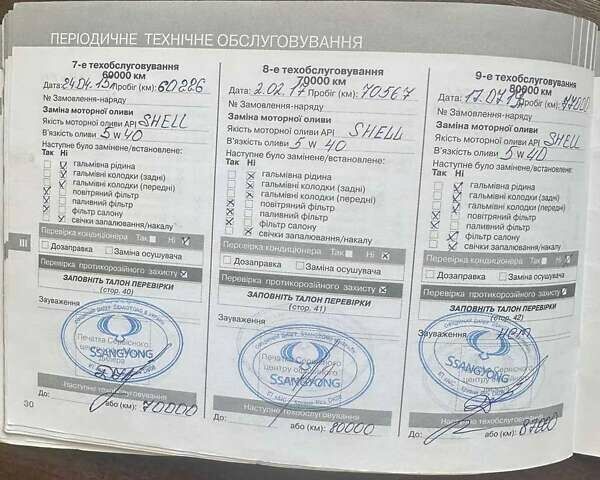 ПЕРІОДИЧНЕ ТЕХНІЧНЕ ОБСЛУГОВУВАННЯ
7-е техобслуговування
60000 км
Дата: 24.04.15 Пробіг (км): 60226
№ Замовлення-наряду
Заміна моторної оливи
Якість моторної оливи API SHELL
В'язкість оливи 5 w 40
Наступне було замінене/встановлене:
Так Ні
гальмівна рідина
гальмівні колодки (задні)
гальмівні колодки (передні)
повітряний фільтр
паливний фільтр
фільтр салону
свічки запалювання/накалу
Перевірка кондиціонера Так Ні
Дозаправка Заміна осушувача
Перевірка протикорозійного захисту
ЗАПОВНІТЬ ТАЛОН ПЕРЕВІРКИ
(стор. 40)
Зауваження:
Печатка Сервісного
центру
SSANGYONG
Наступне техобслуговування
До: або (км): 70000
30
8-е техобслуговування
70000 км
Дата: 2.02.17 Пробіг (км): 70567
№ Замовлення-наряду
Заміна моторної оливи
Якість моторної оливи API SHELL
В'язкість оливи 5 w 40
Наступне було замінене/встановлене:
Так Ні
гальмівна рідина
гальмівні колодки (задні)
гальмівні колодки (передні)
повітряний фільтр
паливний фільтр
фільтр салону
свічки запалювання/накалу
Перевірка кондиціонера Так Ні
Дозаправка Заміна осушувача
Перевірка протикорозійного захисту
ЗАПОВНІТЬ ТАЛОН ПЕРЕВІРКИ
(стор. 41)
Зауваження:
Печатка Сервісного
центру
SSANGYONG
Наступне техобслуговування
До: або (км): 80000
9-е техобслуговування
80000 км
Дата: Пробіг (км):
№ Замовлення-наряду
Заміна моторної оливи
Якість моторної оливи API SHELL
В'язкість оливи 5 w 40
Наступне було замінене/встановлене:
Так Ні
гальмівна рідина
гальмівні колодки (задні)
гальмівні колодки (передні)
повітряний фільтр
паливний фільтр
фільтр салону
свічки запалювання/накалу
Перевірка кондиціонера Так Ні
Дозаправка Заміна осушувача
Перевірка протикорозійного захисту
ЗАПОВНІТЬ ТАЛОН ПЕРЕВІРКИ
(стор. 42)
Зауваження: нет
SSANGYONG
Наступне техобслуговування
До: або (км): 87000
III